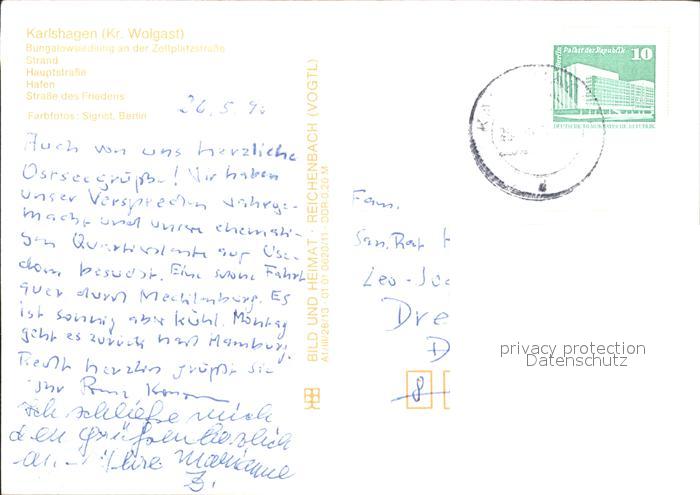 Karlshagen (Kr. Wolgast)
Bungalowsiedlung an der Zeltplatzstraße
Strand
Hauptstraße
Hafen
Straße des Friedens
Farbfotos: Sigrist, Berlin
26.5.90
Auch von uns herzliche
Ostseegrüße! Wir haben
unser Versprechen wahrge-
macht und unsere ehemali-
gen Quartiersleute auf Use-
dom besucht. Eine schöne Fahrt
quer durch Mecklenburg. Es
ist sonnig aber kühl. Montag
geht es zurück nach Hamburg.
Recht herzlich grüßt Sie
Ihr
Ich schließe mich
den Grüßen herzlich
an. – Ihre Marianne
BILD UND HEIMAT · REICHENBACH (VOGTL)
A1/III/26/13 01 01 0620/11 DDR 0,20 M
Berlin Palast der Republik
10
DEUTSCHE DEMOKRATISCHE REPUBLIK
Fam.
San. Rat
Leo-
Dre
D
8
privacy protection
Datenschutz